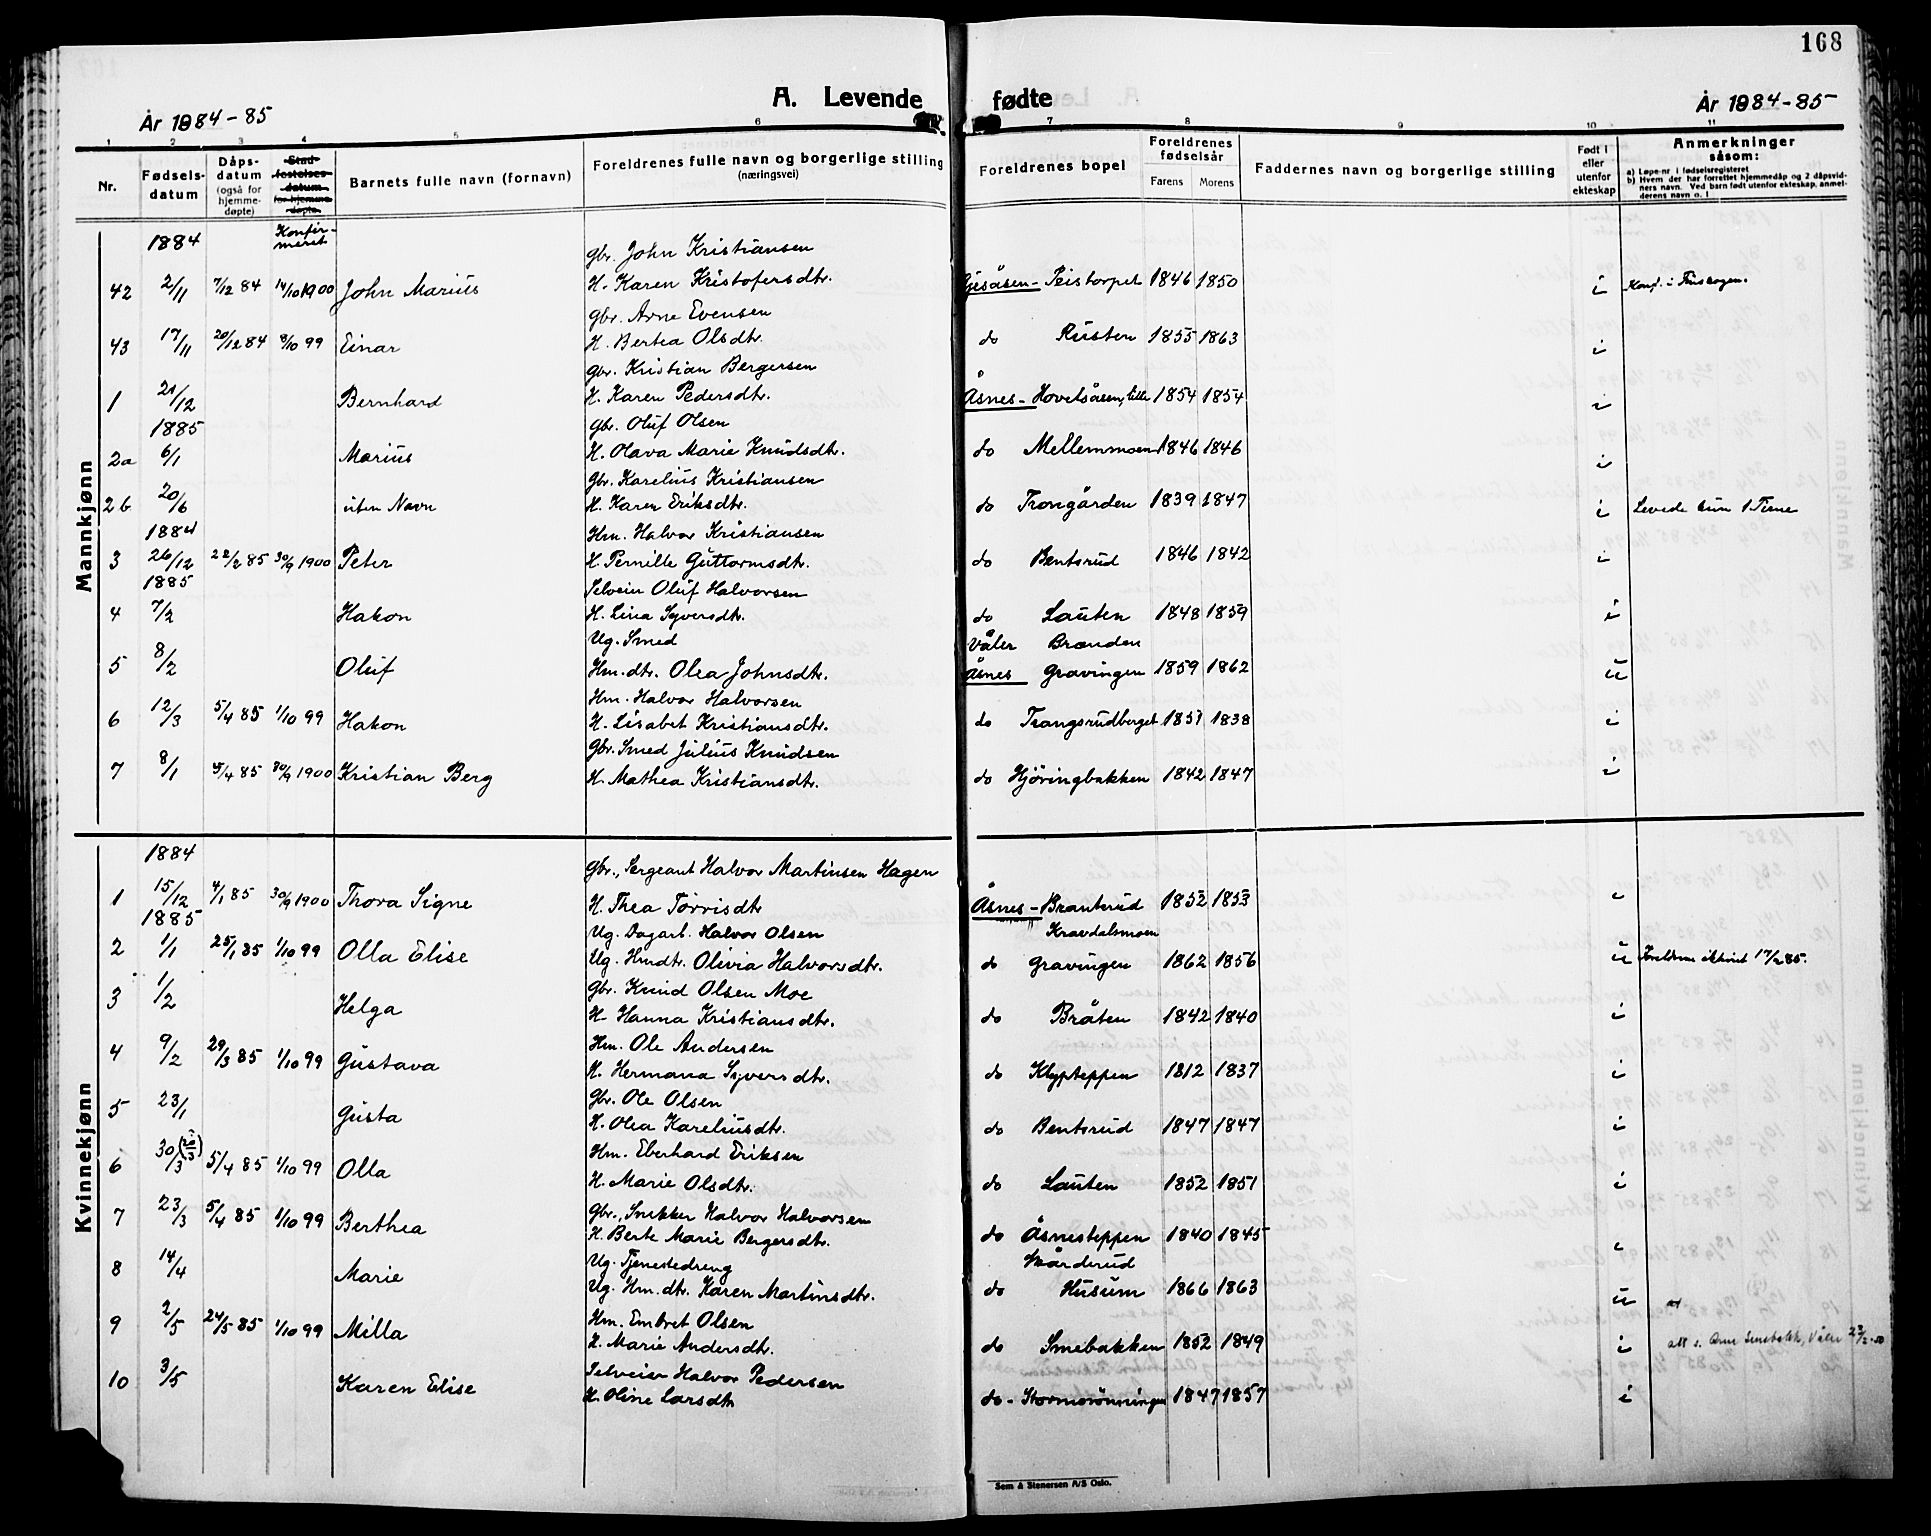 168
A. Levende fødte
År 1884-85
År 1884-85
1 2 3 4 5 6 7 8 9 10 11
Nr.
Fødsels-datum
Dåps-datum (også for hjemme-døpte)
Stad-festelses-datum for hjemme-døpte
Konfir-meret
Barnets fulle navn (fornavn)
Foreldrenes fulle navn og borgerlige stilling (næringsvei)
Foreldrenes bopel
Foreldrenes fødselsår
Farens Morens
Faddernes navn og borgerlige stilling
Født i eller utenfor ekteskap
Anmerkninger såsom:
a) Løpe-nr i fødselsregisteret
b) Hvem der har forrettet hjemmedåp og 2 dåpsvid-
ners navn. Ved barn født utenfor ekteskap, anmel-
derens navn o. l.
Mannkjønn
1884 Gbr. John Kristiansen
42 2/11 7/12 84 14/10 1900 John Marius H. Karen Kristofersdtr. Gjesåsen- Peistorpet 1846 1850 i Konf. i Finskogen.
Gbr. Arne Evensen
43 17/11 20/12 84 8/10 99 Einar H. Bertea Olsdtr. do Rusten 1855 1863 i
Gbr. Kristian Bergersen
1 21/12 Bernhard H. Karen Pedersdtr. Åsnes- Hovelsåsen, lille 1854 1854 i
1885 Gbr. Oluf Olsen
2a 6/1 Marius H. Olava Marie Knudsdtr. do Mellemmoen 1846 1846 i
Gbr. Karelius Kristiansen
2b 20/6 uten Navn H. Karen Eriksdtr. do Trongården 1839 1847 i Levede kun 1 Time
1884 Hm. Halvor Kristiansen
3 26/12 22/2 85 30/9 1900 Peter H. Pernille Guttormsdtr. do Bentsrud 1846 1842 i
1885 Selveier Oluf Halvorsen
4 7/2 Hakon H. Lina Syversdtr. do Lauten 1848 1859 i
Ug. Smed Våler Brænden
5 8/2 Oluf Hm.dtr. Olea Johnsdtr. Åsnes Gravingen 1859 1862 u
Hm. Halvor Halvorsen
6 12/3 5/4 85 1/10 99 Hakon H. Lisabet Kristiansdtr. do Trangsrudberget 1851 1838 i
Gbr. Smed Julius Knudsen
7 8/1 5/4 85 30/9 1900 Kristian Berg H. Mathea Kristiansdtr. do Hjöringbakken 1842 1847 i
Kvinnekjønn
1884 Gbr., Sergeant Halvor Martinsen Hagen
1 15/12 4/1 85 30/9 1900 Thora Signe H. Thea Torrisdtr Åsnes- Branterud 1852 1853 i
1885 Ug. Dagarb. Halvor Olsen Kravdalsmoen
2 1/1 25/1 85 1/10 99 Olla Elise Ug. Hmdtr. Olivia Halvorsdtr. do Gravingen 1862 1856 u Foreldrene ekteviet 17/2 85.
Gbr. Knud Olsen Moe
3 1/2 Helga H. Hanna Kristiansdtr. do Bråten 1842 1840 i
Hm. Ole Andersen
4 9/2 29/3 85 1/10 99 Gustava H. Hermana Syversdtr. do Klypteppen 1812 1837 i
Gbr. Ole Olsen
5 23/1 Gusta H. Olea Kareliusdtr. do Bentsrud 1847 1847 i
Hm. Eberhard Eriksen
6 30/3 5/4 85 1/10 99 Olla H. Marie Olsdtr. do Lauten 1852 1851 i
Gbr., Snekker Halvor Halvorsen
7 23/3 5/4 85 1/10 99 Berthea H. Berte Marie Bergersdtr. do Åsnesteppen 1840 1845 i
Ug. Tjenestedreng Skårderud
8 14/4 Marie Ug. Hm.dtr. Karen Martinsdtr. do Husum 1866 1863 u
Hm. Embret Olsen
9 2/5 24/5 85 1/10 99 Milla H. Marie Andersdtr. do Smebakken 1852 1849 i att s. Arne Våler
Selveier Halvor Pedersen
10 3/5 Karen Elise H. Oline Larsdtr do- Stormorönningen 1847 1857 i
Sem & Stenersen A/S Oslo.